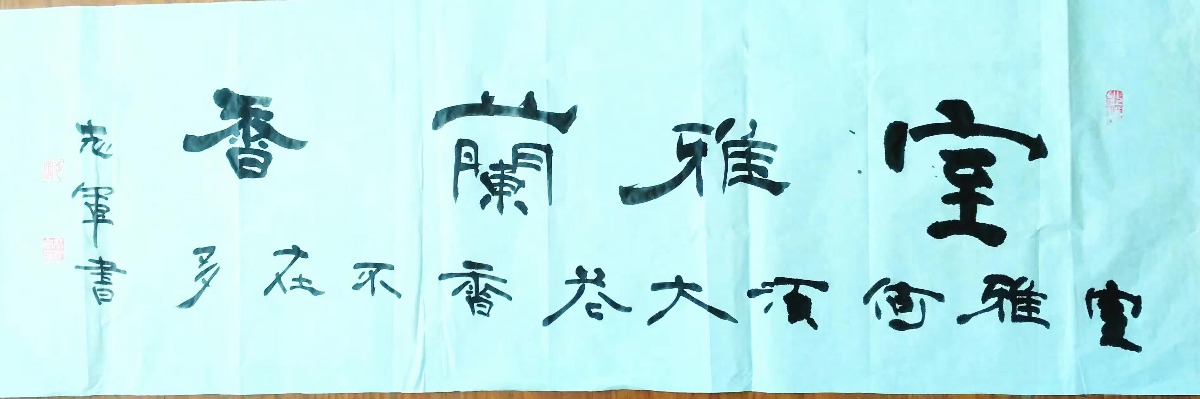 室雅蘭香
室雅何須大花香不在多
志軍書